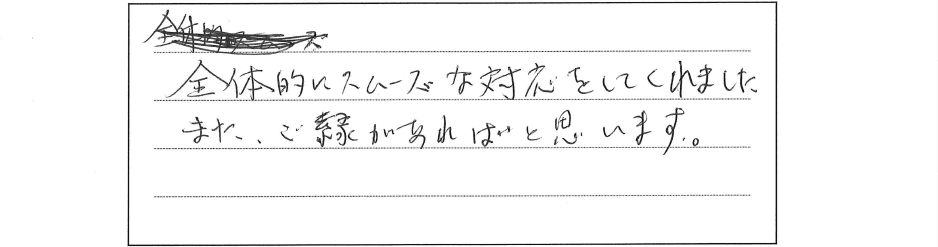 全体的にスムーズな対応をしてくれました
また、ご縁があればいと思います。